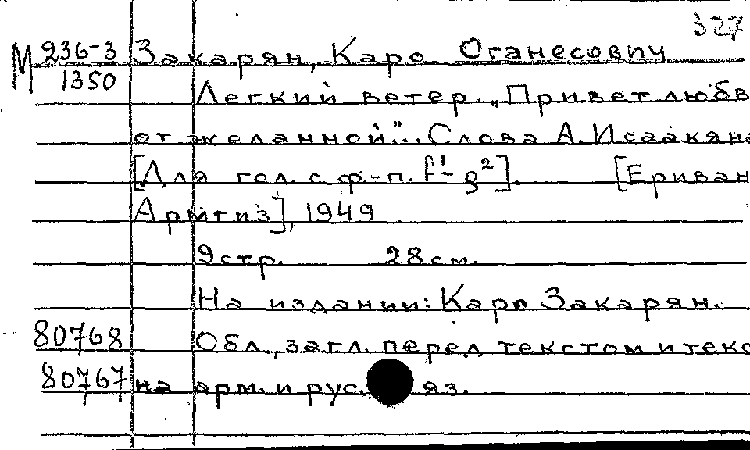 327
М 236-3 Закарян, Каро Оганесович
1350
Легкий ветер. „Привет любв
от желанной". Слова А. Исаакяна
[Для гол. с ф-п. f¹-g²]. [Ериван
Армгиз], 1949
9 стр. 28 см.
На издании: Каро Закарян.
80768 Обл., загл. перед текстом и текс
80767 на арм. и рус. яз.